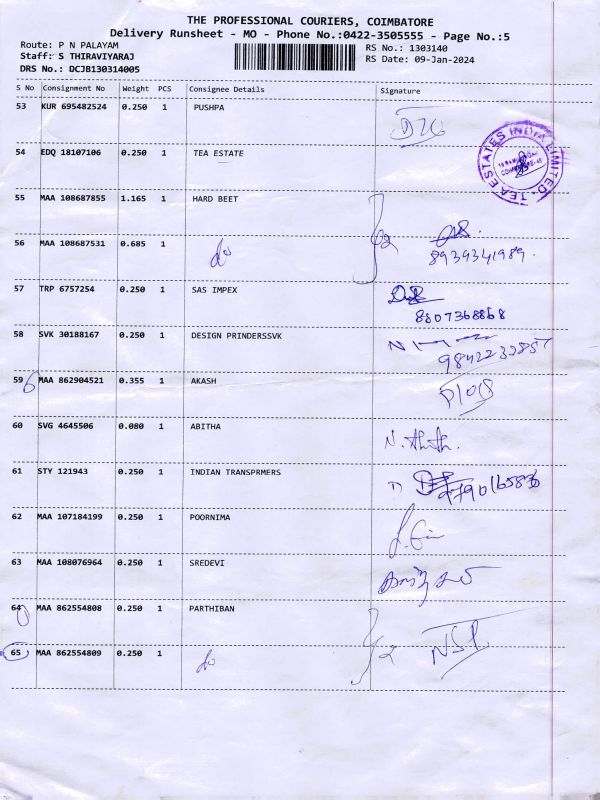 THE PROFESSIONAL COURIERS, COIMBATORE
Delivery Runsheet - MO - Phone No.:0422-3505555 - Page No.:5
Route: P N PALAYAM
Staff: S THIRAVIYARAJ
DRS No.: DCJB130314005
RS No.: 1303140
RS Date: 09-Jan-2024
S No Consignment No Weight PCS Consignee Details Signature
53 KUR 695482524 0.250 1 PUSHPA
54 EDQ 18107106 0.250 1 TEA ESTATE
TEA ESTATES INDIA LIMITED.
55 MAA 108687855 1.165 1 HARD BEET
56 MAA 108687531 0.685 1 do
8939341989.
57 TRP 6757254 0.250 1 SAS IMPEX
8807368868
58 SVK 30188167 0.250 1 DESIGN PRINDERSSVK
9842232857
59 MAA 862904521 0.355 1 AKASH
60 SVG 4645506 0.080 1 ABITHA
61 STY 121943 0.250 1 INDIAN TRANSPRMERS
62 MAA 107184199 0.250 1 POORNIMA
63 MAA 108076964 0.250 1 SREDEVI
64 MAA 862554808 0.250 1 PARTHIBAN
65 MAA 862554809 0.250 1 do